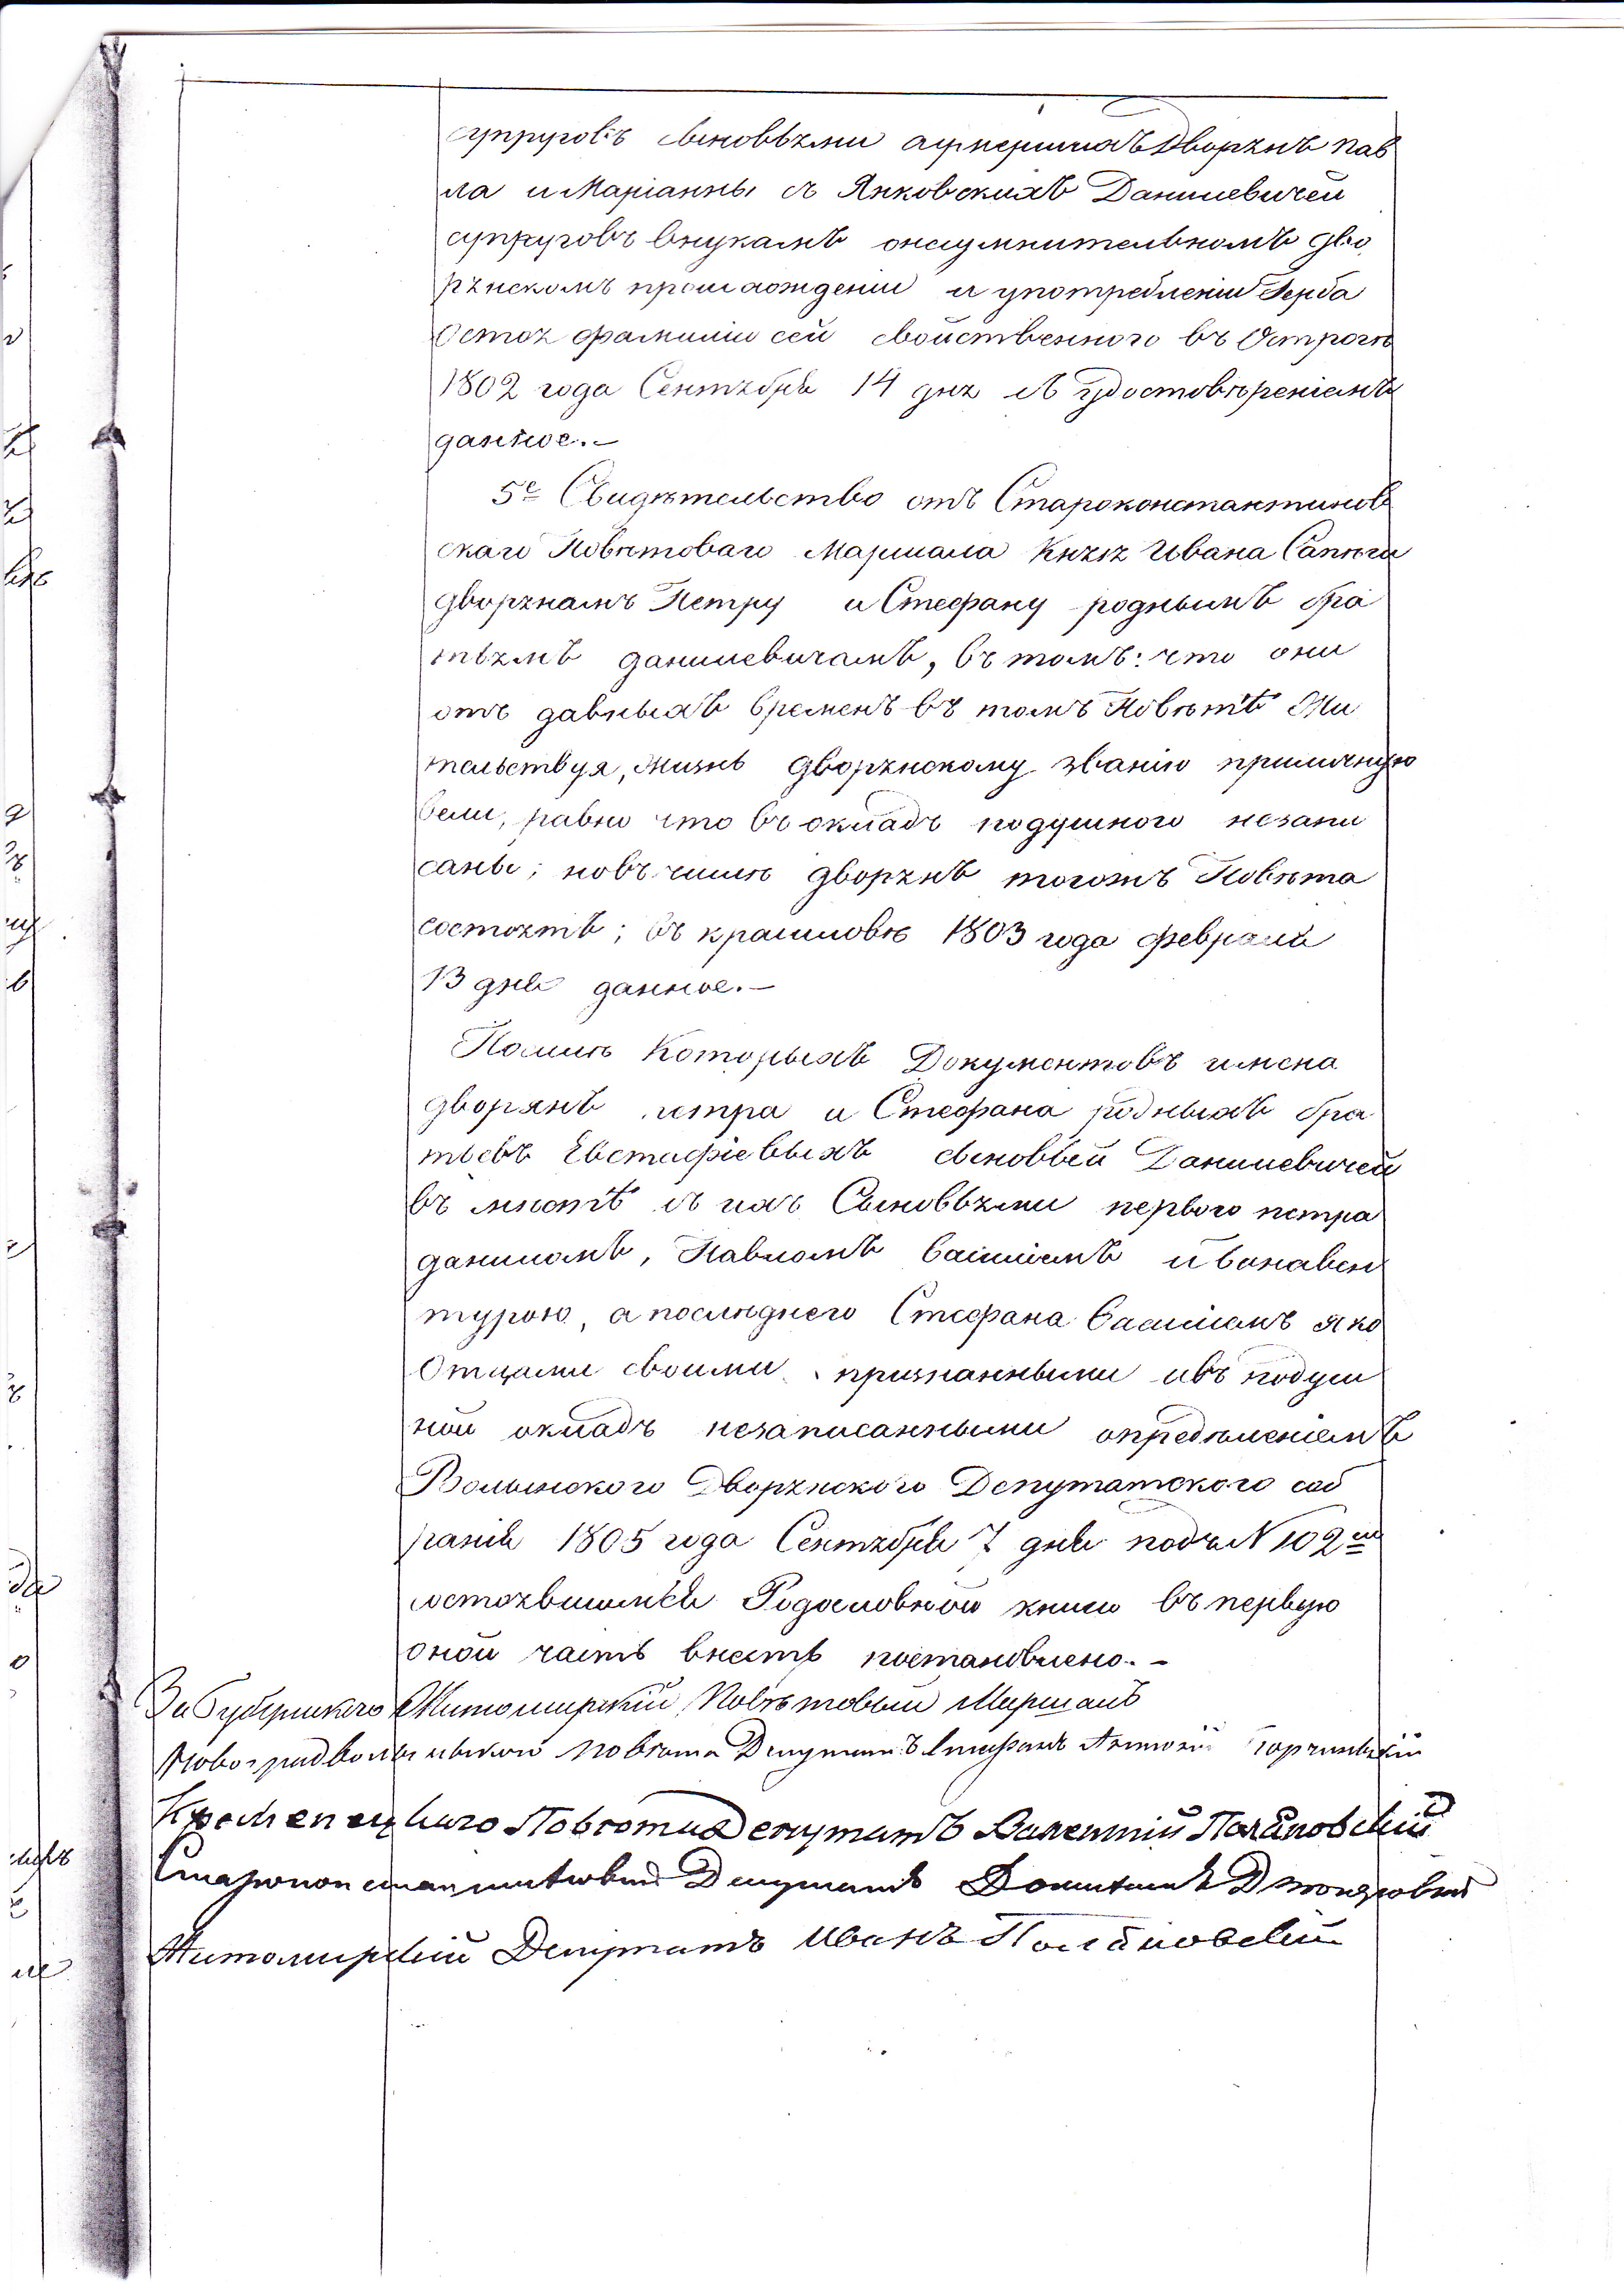 супруговъ сыновьями аумершихъ Дворянъ Пав
ла и Маріанны съ Янковскихъ Данилевичей
супруговъ внукамъ онесумнительномъ дво
рянскомъ происхожденіи и употребленіи Герба
Остоя фамиліи сей свойственного въ Острогѣ
1802 года Сентября 14 дня съ удостовѣреніемъ
данное.-
5е Свидѣтельство отъ Староконстантинов
скаго Повѣтоваго Маршала Князя Ивана Сапѣги
дворянамъ Петру и Стефану роднымъ бра
тьямъ данилевичамъ, въ томъ: что они
отъ давныхъ временъ въ томъ Повѣтѣ Жи
тельствуя, жизнь дворянскому званію приличную
вели, равно что въ окладъ подушного незапи
саны; новъ числѣ дворянъ тогожъ Повѣта
состоятъ; въ красиловѣ 1803 года февраля
13 дня данное.-
Посилѣ Которыхъ Документовъ имена
дворянъ петра и Стефана родныхъ бра
тьевъ Евстафіевыхъ сыновьей Данилевичей
въ мѣстѣ съ ихъ Сыновьями первого петра
даниломъ, Павломъ Василіемъ и бонавен
турою, а послѣднего Стефана Василіемъ яко
Отцами своими признанными ивъ подуш
ной окладъ незаписанными опредѣленіемъ
Волынского Дворянского Депутатского соб
ранія 1805 года Сентября 7 дня подъ N 102м
состоявшимся Родословной книги въ первую
оной часть внесть постановлено.-
За Губернского Житомирскій Повѣтовый Маршалъ
Новоградволынского Повѣта Депутатъ Стефанъ Антоній
Кременецкаго Повѣта Депутатъ Валентій
Староконстантиновскій Депутатъ Доминикъ
Житомирскій Депутатъ Иванъ